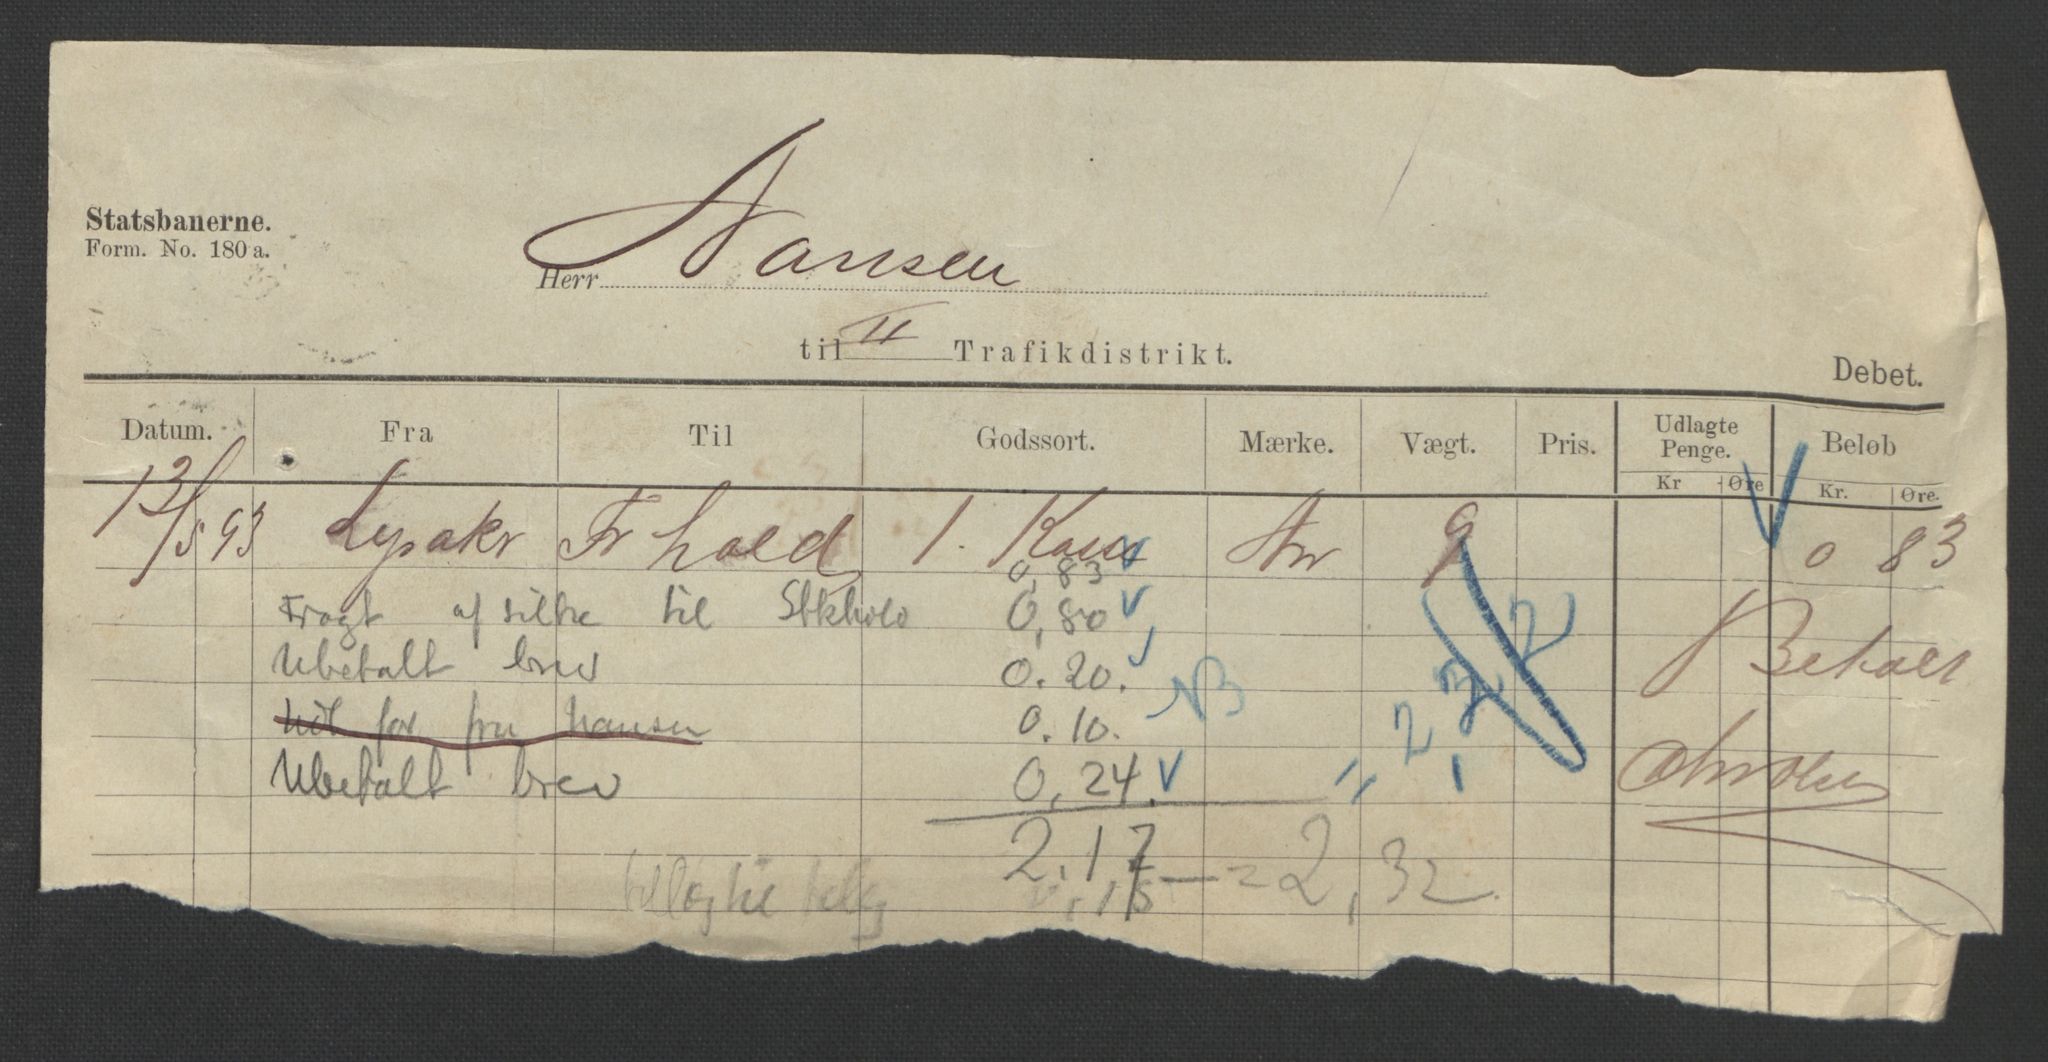 Statsbanerne.
Form. No. 180 a.
Herr Nansen
til II Trafikdistrikt.
Debet.
Datum. Fra Til Godssort. Mærke. Vægt. Pris. Udlagte Penge. Beløb
Kr Øre Kr. Øre.
13/5 93 Lysaker Fr hald 1. Kasse An 9 0 83
0,83
Fragt af silke til Stkholm 0,80
Ubetalt brev 0.20. Betalt
for fru Nansen 0.10. NB
Ubetalt brev 0,24.
2.17 = 2,32
0,15